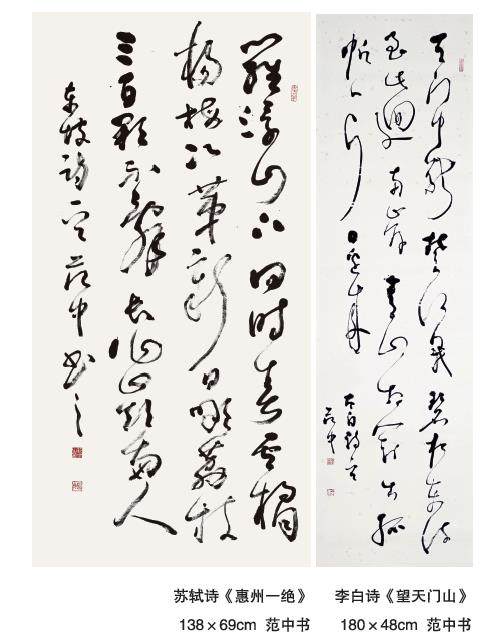 羅浮山下四时春卢橘
杨梅次第新日啖荔枝
三百颗不辞长作岭南人
东坡诗一首 范中书之
天门中断楚江开碧水东流
至此迴两岸青山相对出孤
帆一片日边来
太白诗意
范中
苏轼诗《惠州一绝》
138×69cm 范中书
李白诗《望天门山》
180×48cm 范中书